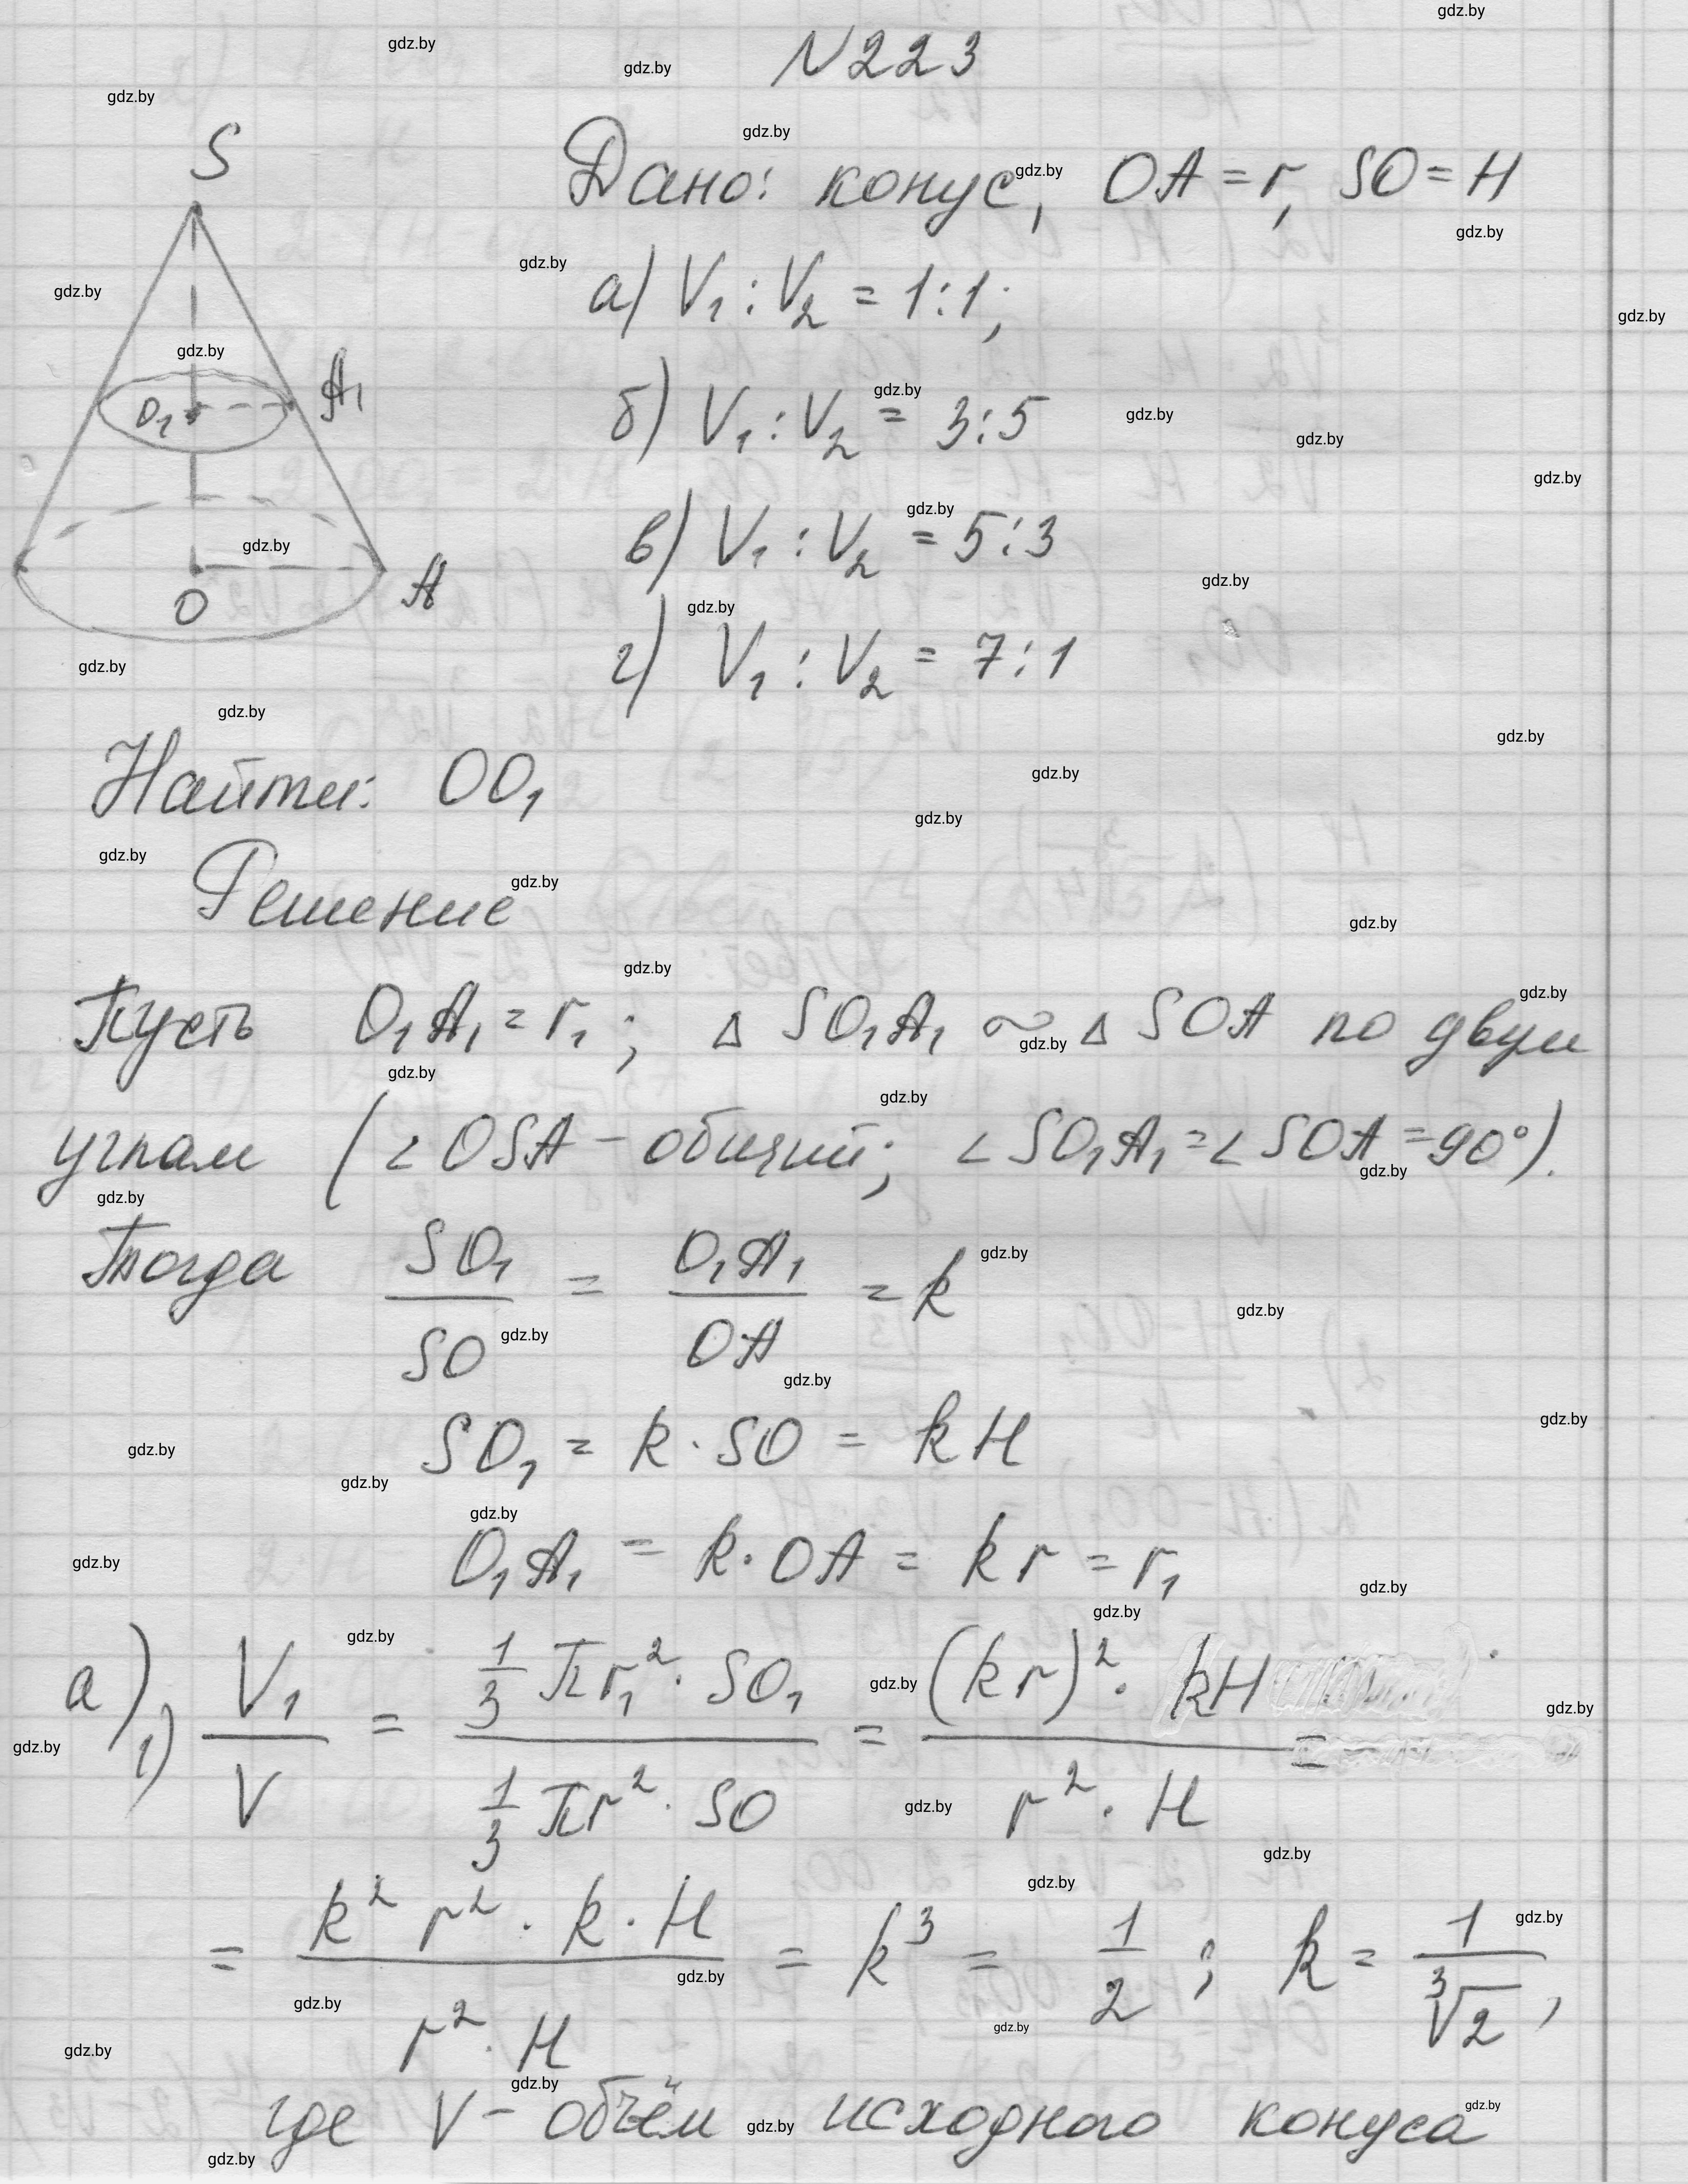 N223
Дано: конус, OA = r, SO = H
а) V₁ : V₂ = 1:1;
б) V₁ : V₂ = 3:5
в) V₁ : V₂ = 5:3
г) V₁ : V₂ = 7:1
S
O₁ A₁
O A
Найти: OO₁
Решение
Пусть O₁A₁ = r₁; Δ SO₁A₁ ∼ Δ SOA по двум
углам (∠OSA – общий; ∠SO₁A₁ = ∠SOA = 90°).
Тогда SO₁/SO = O₁A₁/OA = k
SO₁ = k · SO = kH
O₁A₁ = k · OA = kr = r₁
а) 1) V₁/V = (1/3 πr₁² · SO₁)/(1/3 πr² · SO) = ((kr)² · kH)/(r² · H) =
= (k² r² · k · H)/(r² · H) = k³ = 1/2; k = 1/∛2,
где V – объём исходного конуса
gdz.by